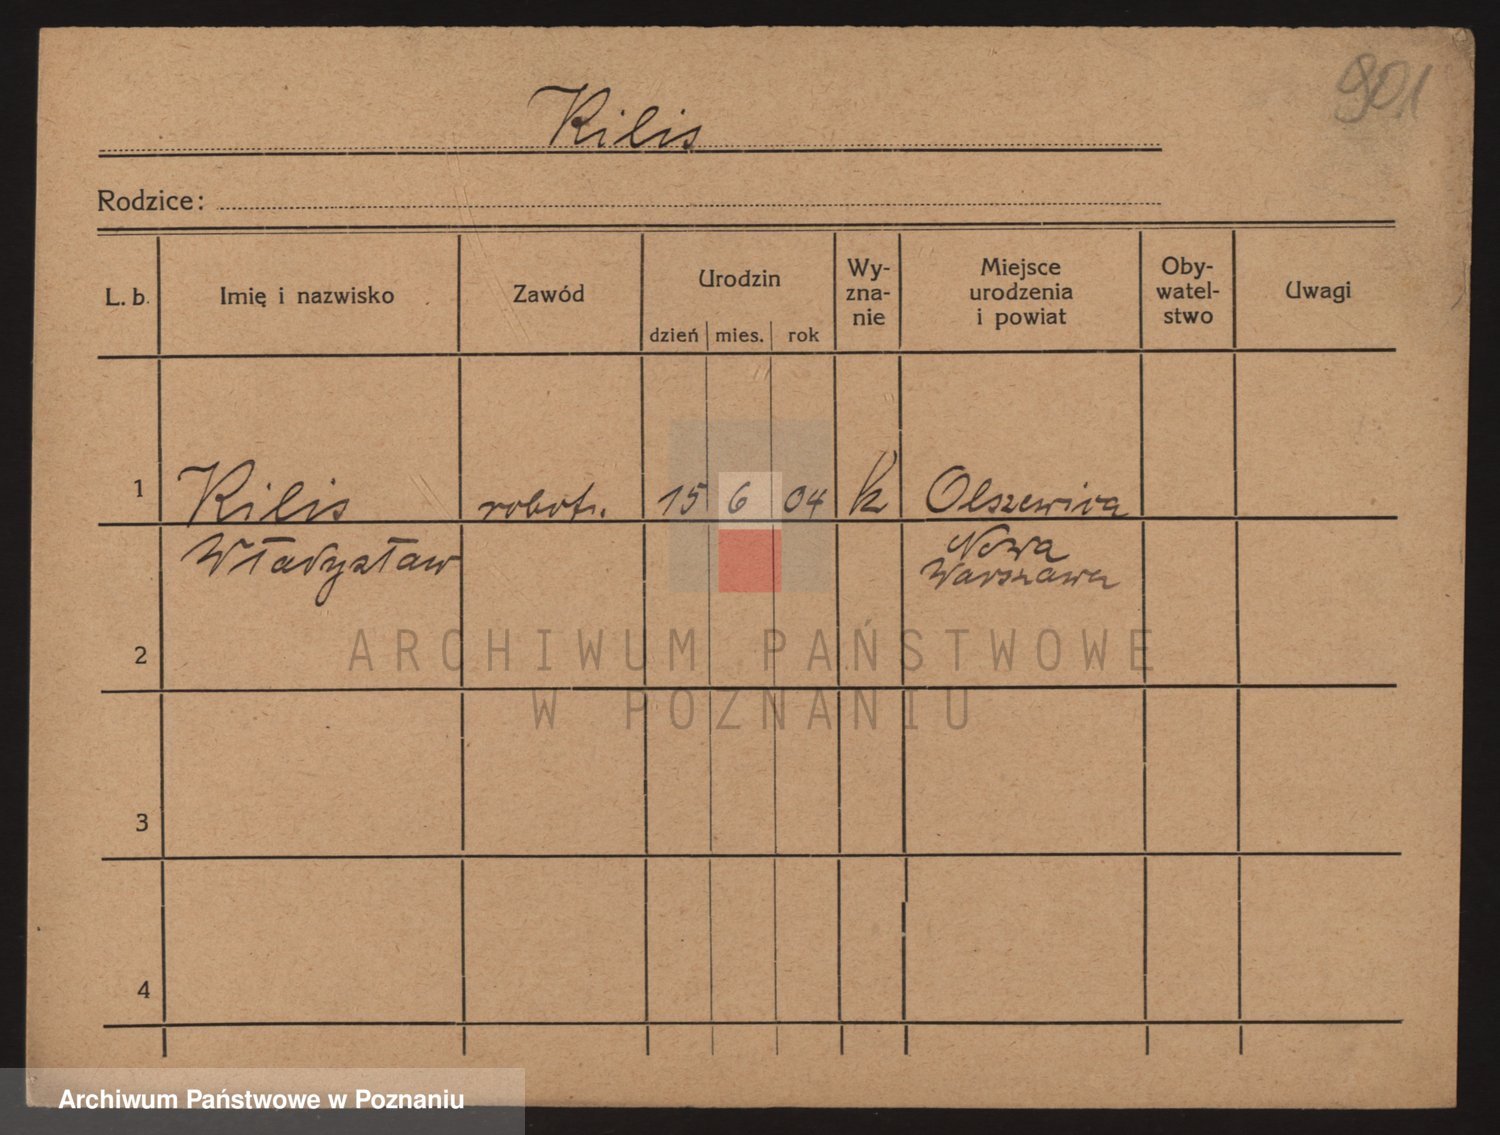 901
Kilis
Rodzice:
L. b.
Imię i nazwisko
Zawód
Urodzin
dzień mies. rok
Wy-
zna-
nie
Miejsce
urodzenia
i powiat
Oby-
watel-
stwo
Uwagi
1 Kilis robotn. 15 6 04 k Olszewica
Władysław Nowa
Warszawa
2
3
4
ARCHIWUM PAŃSTWOWE
W POZNANIU
Archiwum Państwowe w Poznaniu